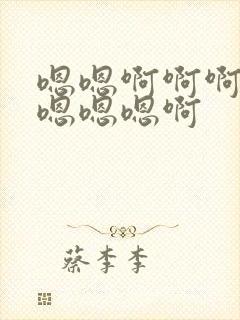 嗯嗯啊啊啊
嗯嗯嗯啊
蔡李李